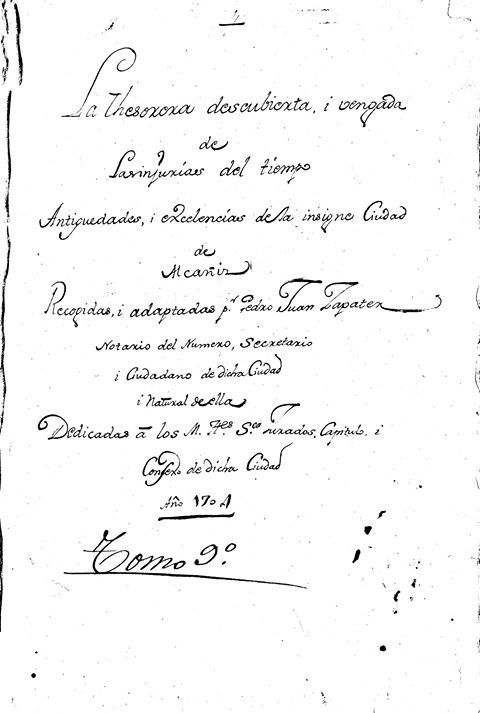 La Thesorera descubierta, i vengada
de
Las injurias del tiempo
Antiguedades, i excelencias de la insigne Ciudad
de
Alcañiz
Recogidas, i adaptadas pʳ Pedro Juan Zapater
Notario del Numero, Secretario
i Ciudadano de dicha Ciudad
i Natural de ella
Dedicadas â los M. Yˡᵉˢ S.ʳᵉˢ Jurados, Capitulo, i
Consejo de dicha Ciudad
Año 1704
Tomo 9º